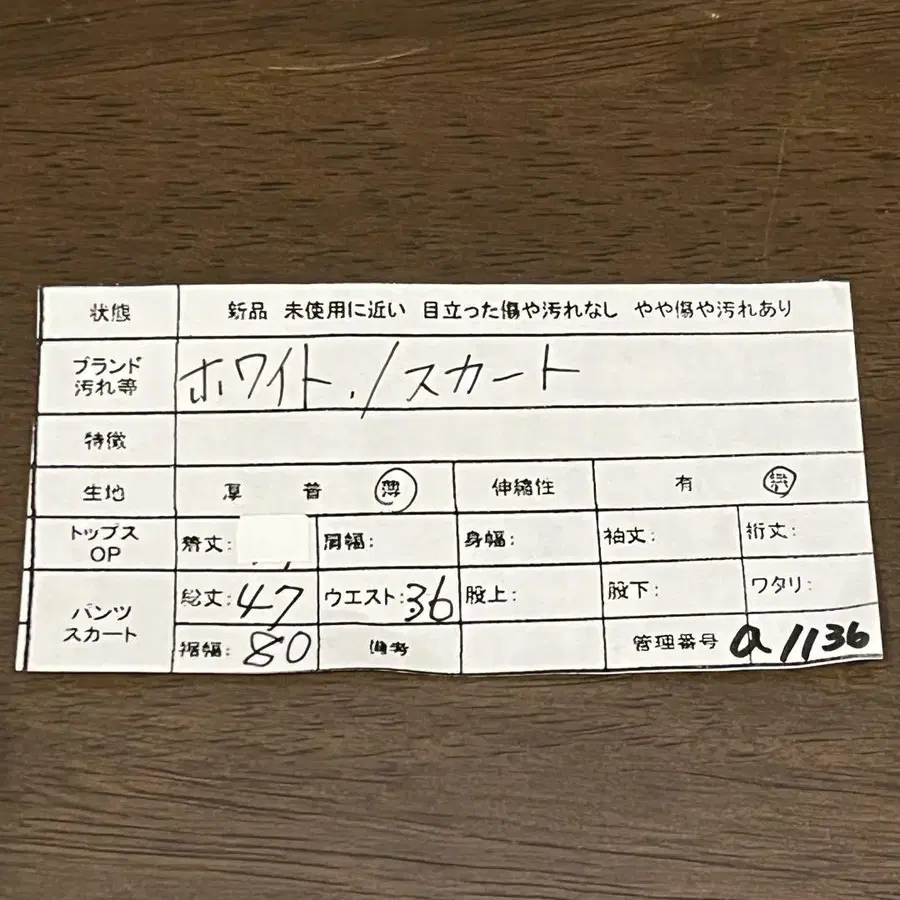 状態 新品 未使用に近い 目立った傷や汚れなし やや傷や汚れあり
ブランド
汚れ等
ホワイト./スカート
特徴
生地 厚 普 薄 伸縮性 有 無
トップス
OP
着丈: 肩幅: 身幅: 袖丈: 裄丈:
パンツ
スカート
総丈:47 ウエスト:36 股上: 股下: ワタリ:
裾幅:80 備考 管理番号 a1136